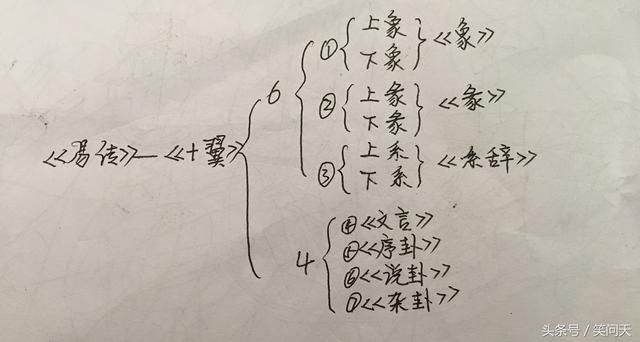 《易传》—《十翼》
6
① 上象
下象
《象》
② 上彖
下彖
《彖》
③ 上系
下系
《系辞》
4
④《文言》
⑤《序卦》
⑥《说卦》
⑦《杂卦》
头条号 / 笑问天